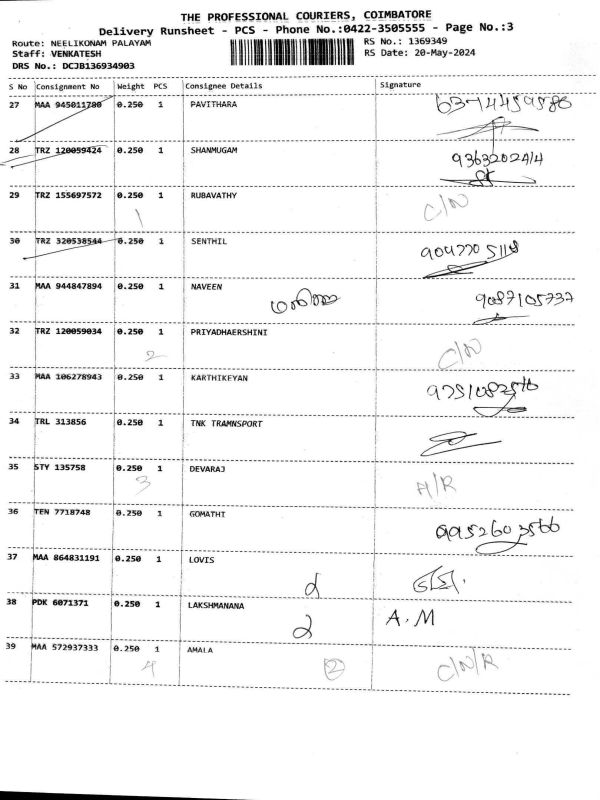 THE PROFESSIONAL COURIERS, COIMBATORE
Delivery Runsheet - PCS - Phone No.:0422-3505555 - Page No.:3
Route: NEELIKONAM PALAYAM RS No.: 1369349
Staff: VENKATESH RS Date: 20-May-2024
DRS No.: DCJB136934903
S No Consignment No Weight PCS Consignee Details Signature
27 MAA 945011780 0.250 1 PAVITHARA
28 TRZ 120059424 0.250 1 SHANMUGAM 9363202414
29 TRZ 155697572 0.250 1 RUBAVATHY C/N
1
30 TRZ 320538544 0.250 1 SENTHIL
31 MAA 944847894 0.250 1 NAVEEN 9087105737
32 TRZ 120059034 0.250 1 PRIYADHAERSHINI C/N
2
33 MAA 106278943 0.250 1 KARTHIKEYAN
34 TRL 313856 0.250 1 TNK TRAMNSPORT
35 STY 135758 0.250 1 DEVARAJ A/R
3
36 TEN 7718748 0.250 1 GOMATHI 9952603566
37 MAA 864831191 0.250 1 LOVIS
38 PDK 6071371 0.250 1 LAKSHMANANA A.M
2
39 MAA 572937333 0.250 1 AMALA C/N/R
4 2